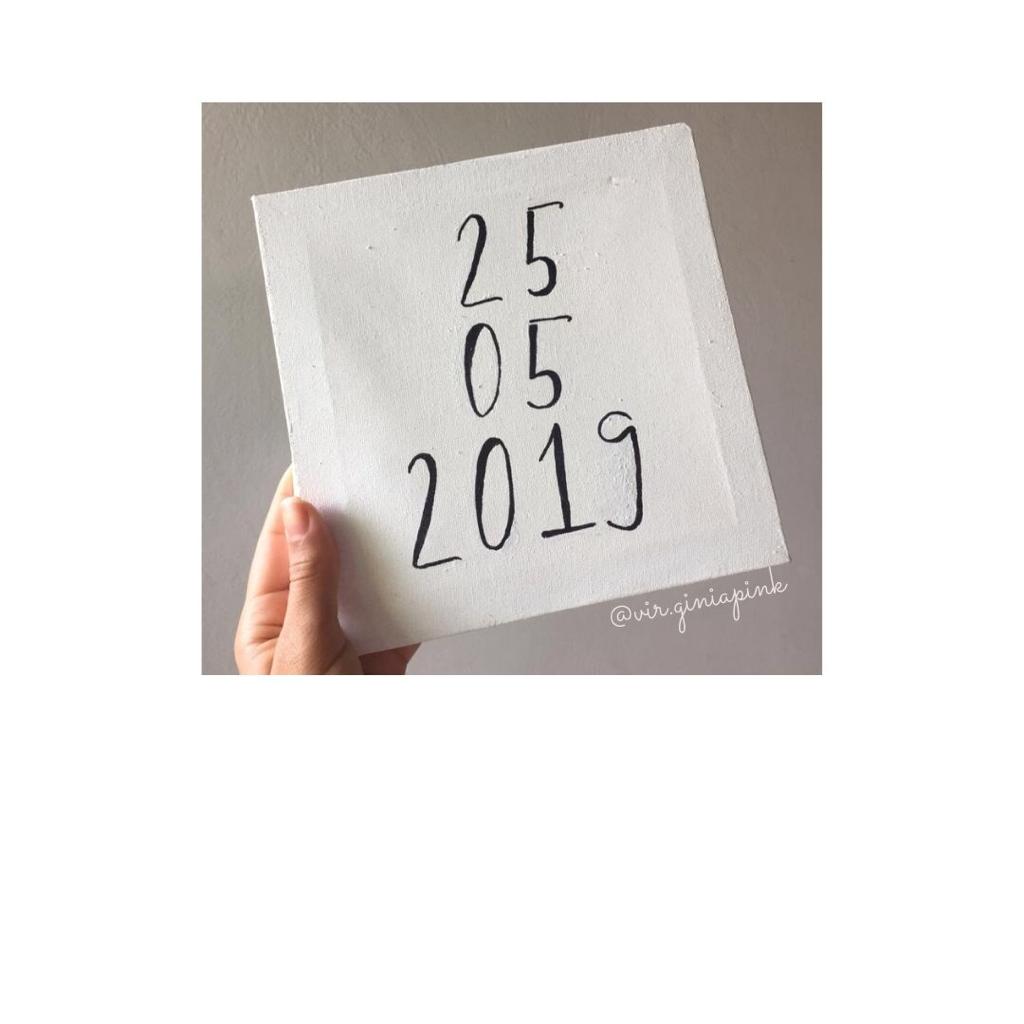 25
05
2019
@vir.giniapink